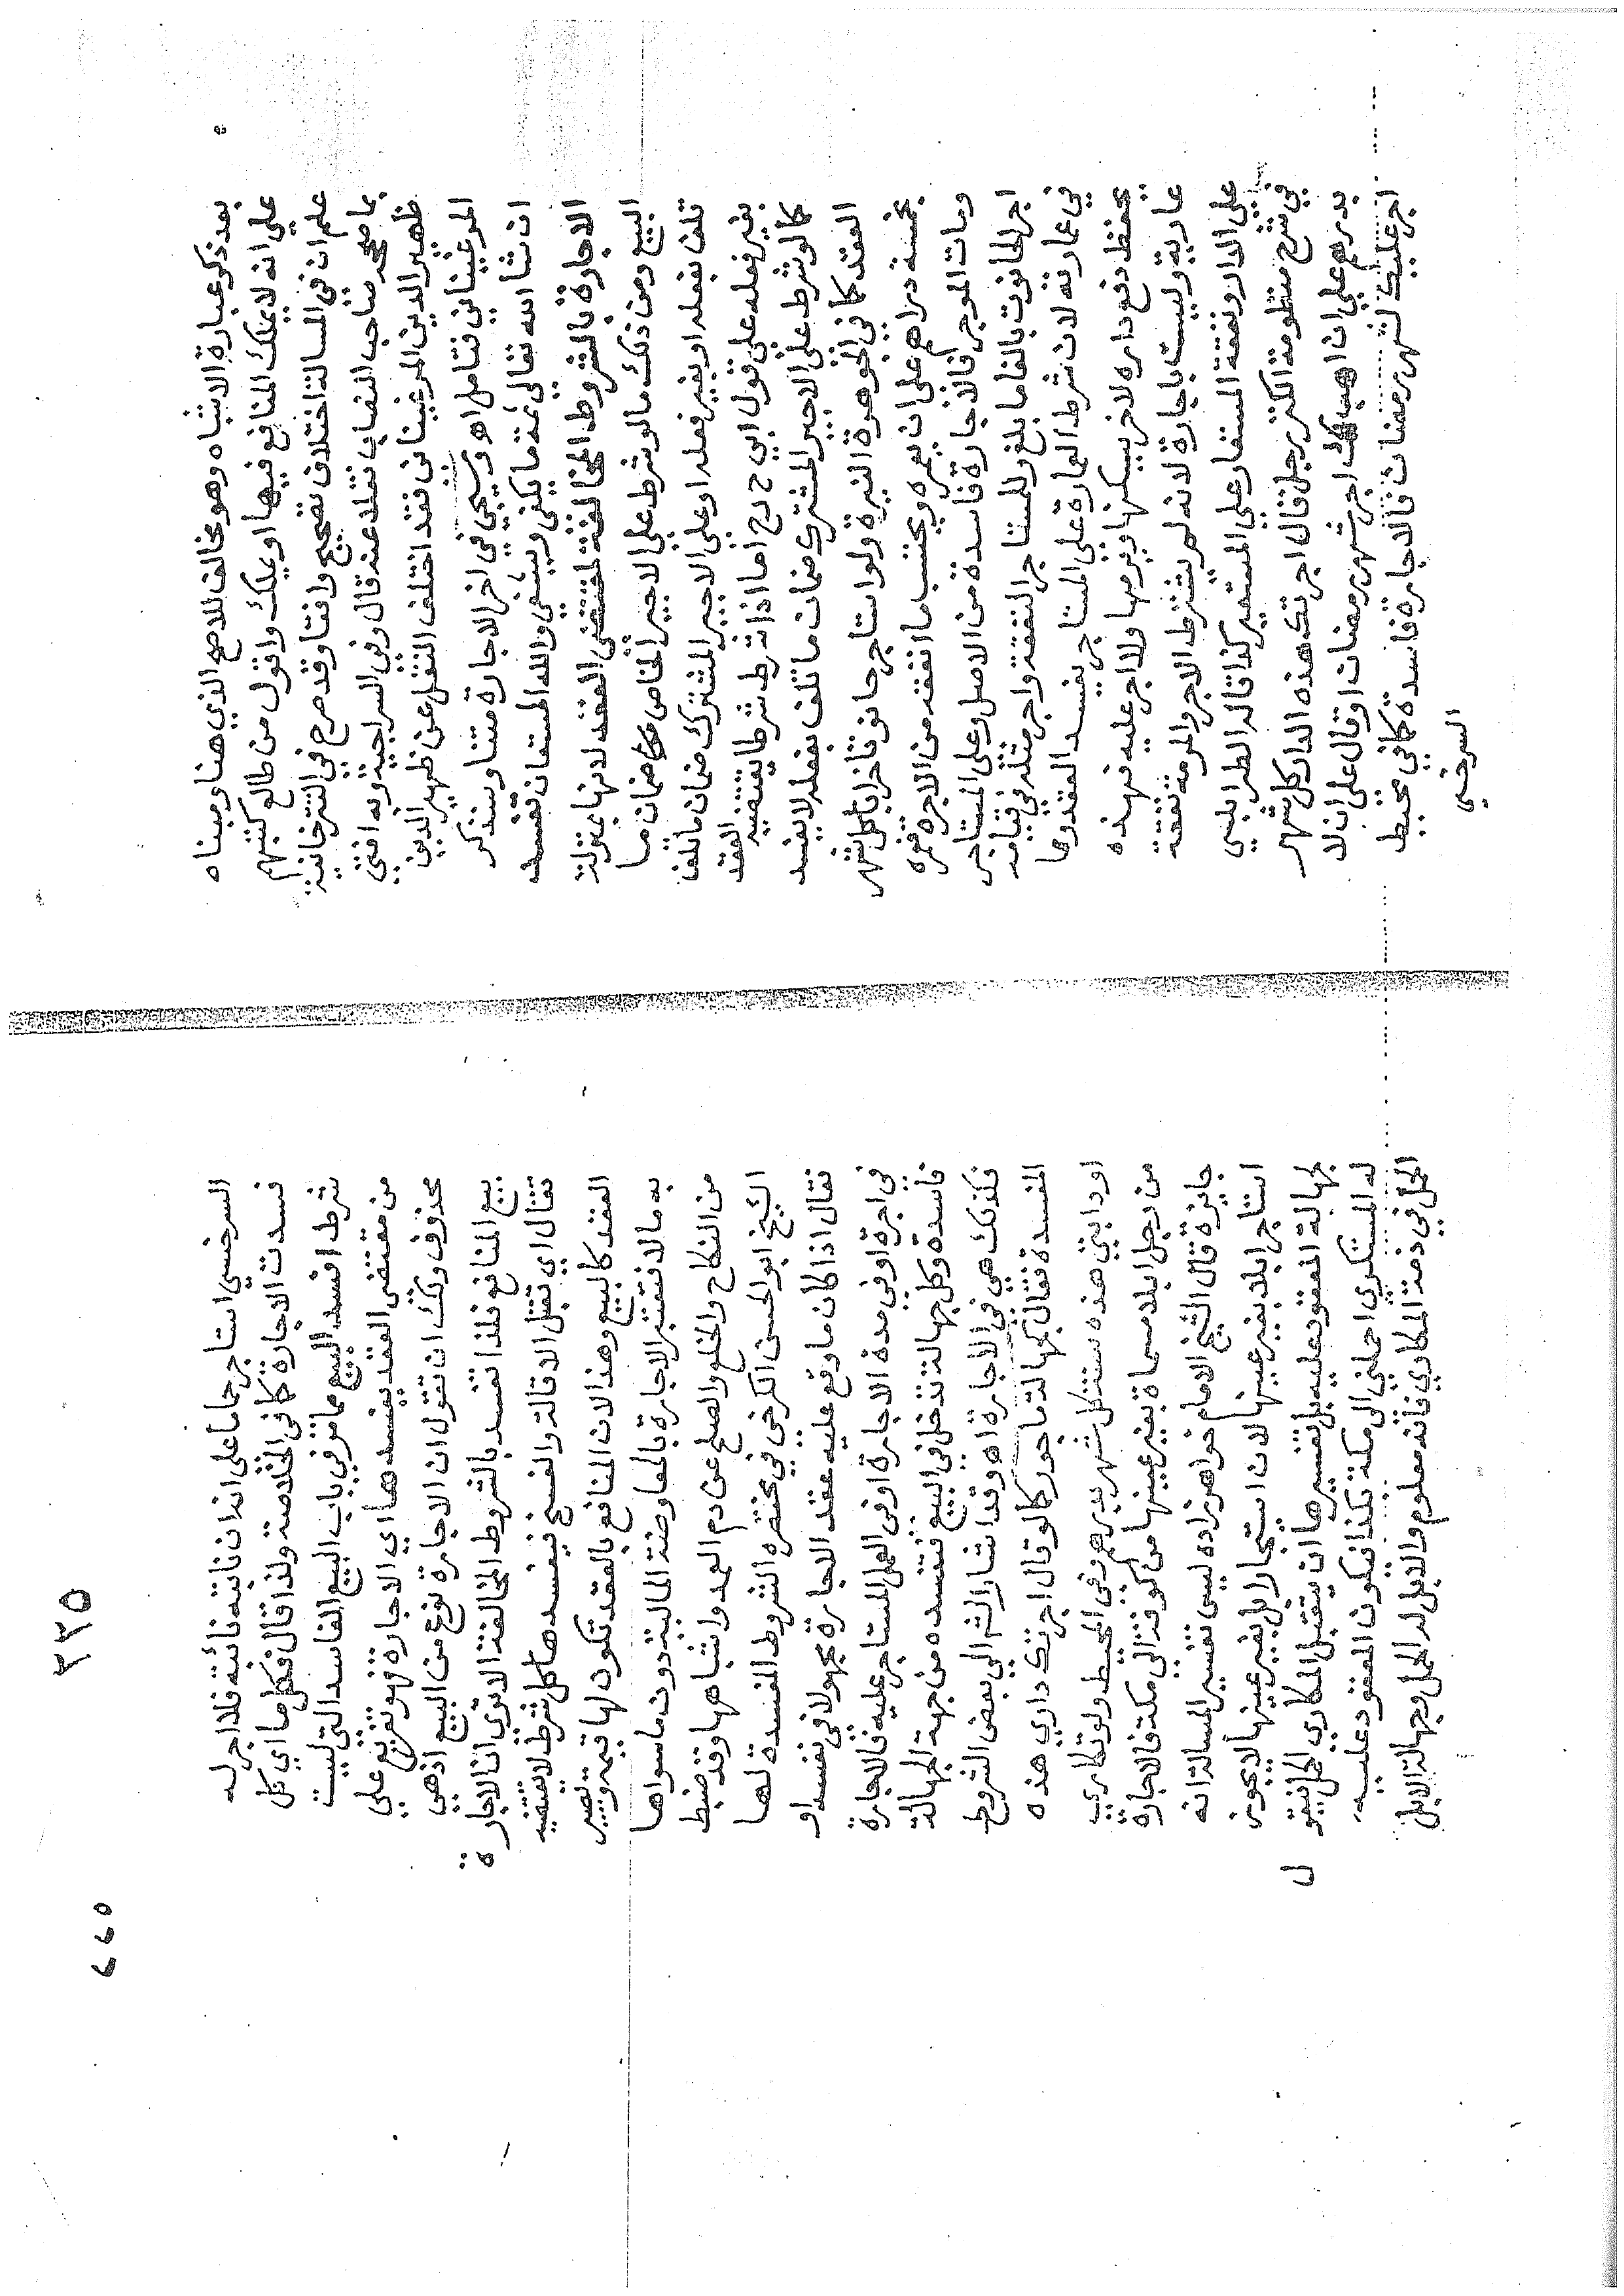 بعد ذكر عبارة الاشباه وهو مخالف للاصح الذي هنا ومبناه
على انه لا يملك المنافع فيها او يملك واقول من طالع كتبهم
علم ان في المسالة اختلاف تصحيح وافتا وقد صرح في التترخانية
بما صححه صاحب النصاب نقلا عنه قال وفي السراجية وبه افتى
ظهير الدين المرغيناني فقد اختلف النقل عن ظهير الدين
المرغيناني فتامل اهـ وسيجي في اخر الاجارة متنا وسنذكر
ان شا الله تعالى ثمة ما يكفي ويشفي والله المستعان تفسد
الاجارة بالشروط المخالفة لمقتضى العقد لانها بمنزلة
البيع ومن ذلك ما لو شرط على الاجير الخاص ضمان ما
تلف بفعله او بغير فعله او على الاجير المشترك ضمان ما تلف
بغير فعله على قول ابي ح رح اما اذا شرط شرطا يقتضيه العقد
كما لو شرط على الاجير المشترك ضمان ما تلف بفعله لا يفسد
العقد كما في الجوهرة النيرة ولو استاجر حانوتا خرابا كل شهر
بخمسة دراهم على ان يعمره ويحتسب ما انفقه من الاجرة فعمره
ومات الموجر فالاجارة فاسدة من الاصل وعلى المستاجر
اجر الحانوت بالغا ما بلغ وللمستاجر النفقة واجر مثله في قيامه
في عمارته لان شرط العمارة على المستاجر يفسد العقد وما
يحفظ دفع داره لاخر يسكنها ويرمها ولا اجر عليه فهذه
عارية وليست باجارة لانه لم يشترط الاجر والمرمة نفقة
على الدار ونفقة المستعار على المستعير كذا قاله الطرابلسي
في شرح منظومة الكنز رجل قال اجرتك هذه الدار كل شهر
بدرهم على ان اهب لك اجر شهر رمضان او قال على ان لا
اجر عليك لشهر رمضان فالاجارة فاسدة كما في محيط
السرخسي
٣٣٥
٢٢٥
السرخسي استاجر حماما على انه ان نابته نائبة فلا اجر له
فسدت الاجارة كما في الخلاصة ولذا قال فكل ما اي كل
شرط افسد البيع مما مر في باب البيع الفاسد التي ليست
من مقتضى العقد يفسدها اي الاجارة فهو تفريع على
محذوف ولك ان تقول ان الاجارة نوع من البيع اذ هي
بيع المنافع فلذا تفسد بالشروط المخالفة الا ترى ان الاجارة
تقال اي تقبل الاقالة والفسخ فيفسدها كل شرط لا يقتضيه
العقد كالبيع وهذا لان المنافع بالعقد تكون لها قيمة وتصير
به مالا فتعتبر الاجارة بالمعاوضة المالية دون ما سواها
من النكاح والخلع والصلح عن دم العمد واشباهها وقد ضبط
الشيخ ابو الحسن الكرخي في مختصره الشروط المفسدة لها
فقال اذا كان ما وقع عليه عقد الاجارة مجهولا في نفسه او
في اجرة او في مدة الاجارة او في العمل المستاجر عليه فالاجارة
فاسدة وكل جهالة تدخل في البيع فتفسده من جهة الجهالة
فكذلك هي في الاجارة اهـ وقد اشار الشم الى بعض الشروط
المفسدة فقال كجهالة ماجور كما لو قال اجرتك داري هذه
او دابتي هذه سنة كل شهر بدرهم وفي المحيط ولو تكارى
من رجل ابلا مسماة بغير عينها من كوفة الى مكة فالاجارة
جايزة قال الشيخ الامام خواهر زاده ليس تفسير المسالة انه
استاجر ابلا بغير عينها لان استيجار ابل بغير عينها لا يجوز
لجهالة المعقود عليه بل تفسيرها ان يتقبل المكاري الحمل فيقول
له المستكري احملني الى مكة بكذا فيكون المعقود عليه
الحمل في ذمة المكاري فانه معلوم والابل له الحمل وجهالة الابل